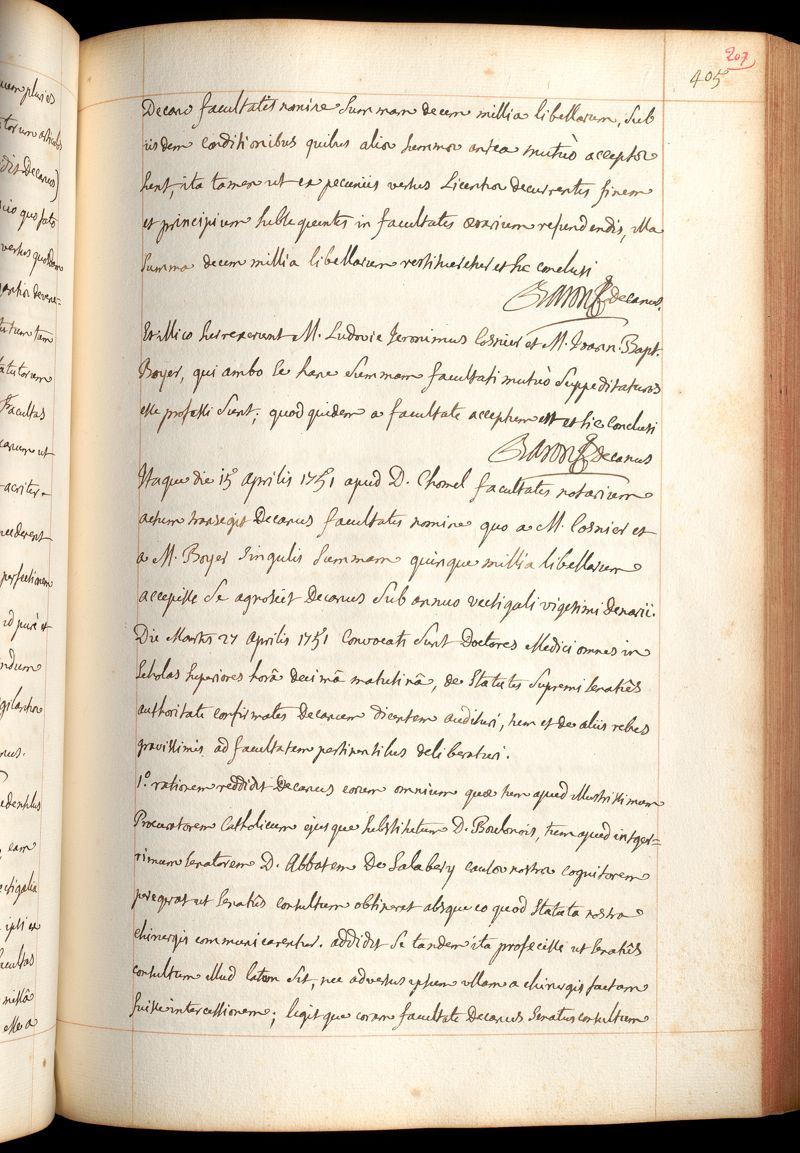 207
405
Decano facultatis nomine summam decem millia libellarum, sub
iisdem conditionibus quibus aliæ summæ antea mutuò acceptæ
sunt, ita tamen ut ex pecuniis versus Licentiæ decurrentis finem
et principium subsequentis in facultatis ærarium refundendis, illa
summa decem millia libellarum restitueretur et sic conclusi
Baron decanus.
Ex illico surrexerunt M. Ludovic Jeronimus Cosnier et M. Joann. Bapt.
Boyer, qui ambo se hanc summam facultati mutuò suppeditaturos
esse professi sunt; quod quidem a facultate acceptum est et sic conclusi
Baron decanus
Itaque die 15º aprilis 1751 apud D. Chomel facultatis notarium
actum transegit Decanus facultatis nomine quo a M. Cosnier et
a M. Boyer singulis summam quinque millia libellarum
accepisse se agnoscit Decanus sub annuo vectigali vigesimi denarii.
Die Martis 27 aprilis 1751 convocati sunt Doctores Medici omnes in
scholas superiores horâ decimâ matutinâ, de statutis supremi senatûs
authoritate confirmatis decanum dicentem audituri, tum et de aliis rebus
gravissimis ad facultatem pertinentibus deliberaturi.
1º. rationem reddidit Decanus eorum omnium quæ tum apud illustrissimum
Procuratorem Catholicum ejusque substitutum D. Boulonois, tum apud integer=
rimum senatorem D. Abbatem De Salabery causæ nostræ cognitorem
peregerat ut senatûs consultum obtineret absque eo quod statuta nostra
chirurgis communicarentur. addidit se tandem ita profecisse ut senatûs
consultum illud latum sit, nec adversus ipsum ullam a chirurgis factam
fuisse intercessionem; legitque coram facultate Decanus senatusconsultum